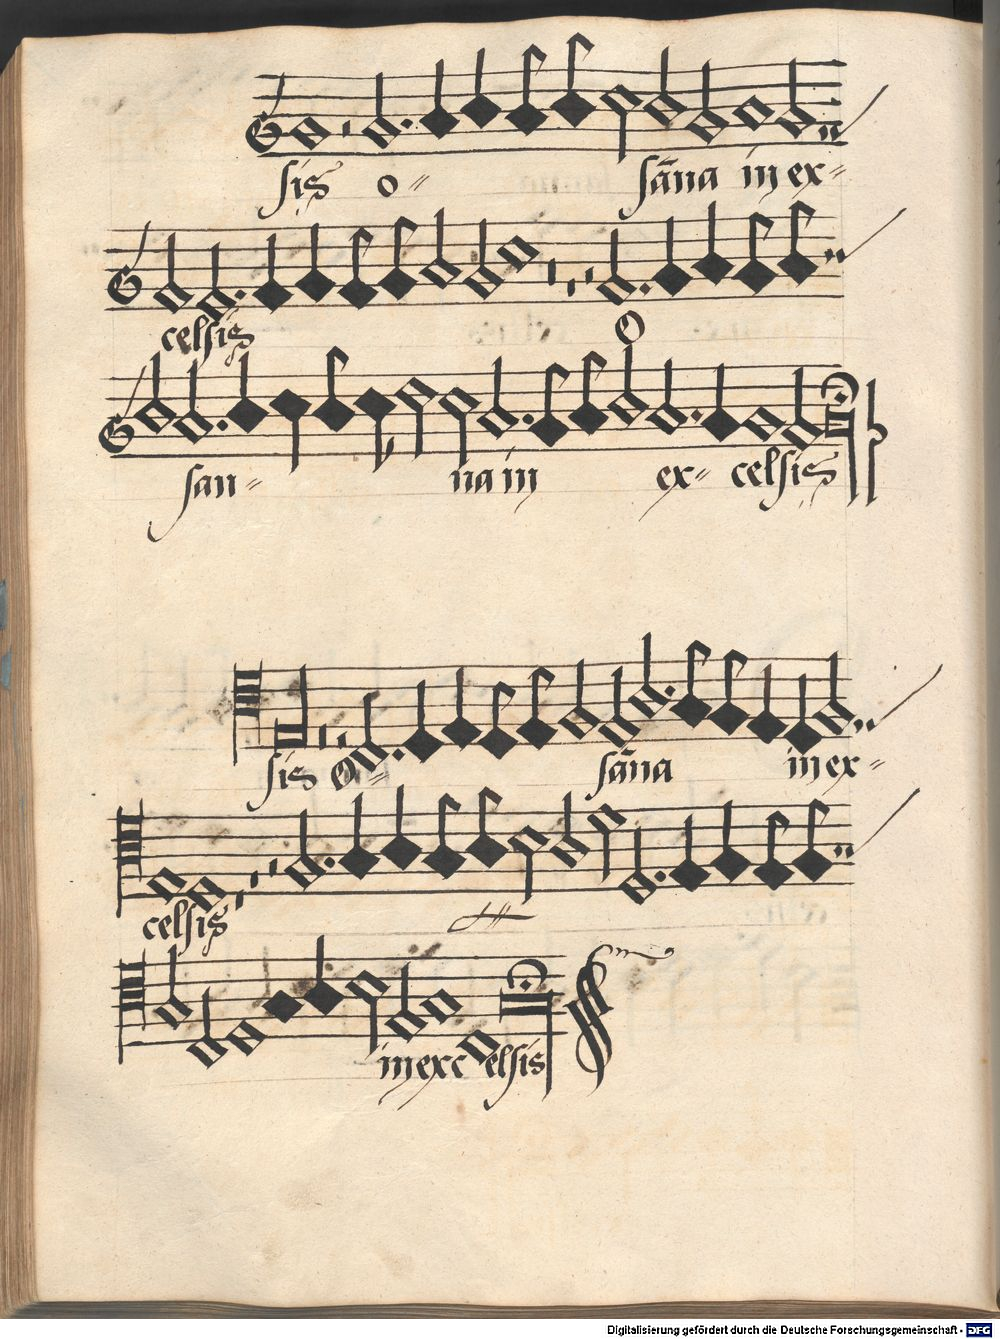 sis o〃 sāna in ex〃
celsis O
san〃 na in ex〃 celsis
sis O〃 sāna in ex〃
celsis
in exc elsis
Digitalisierung gefördert durch die Deutsche Forschungsgemeinschaft - DFG